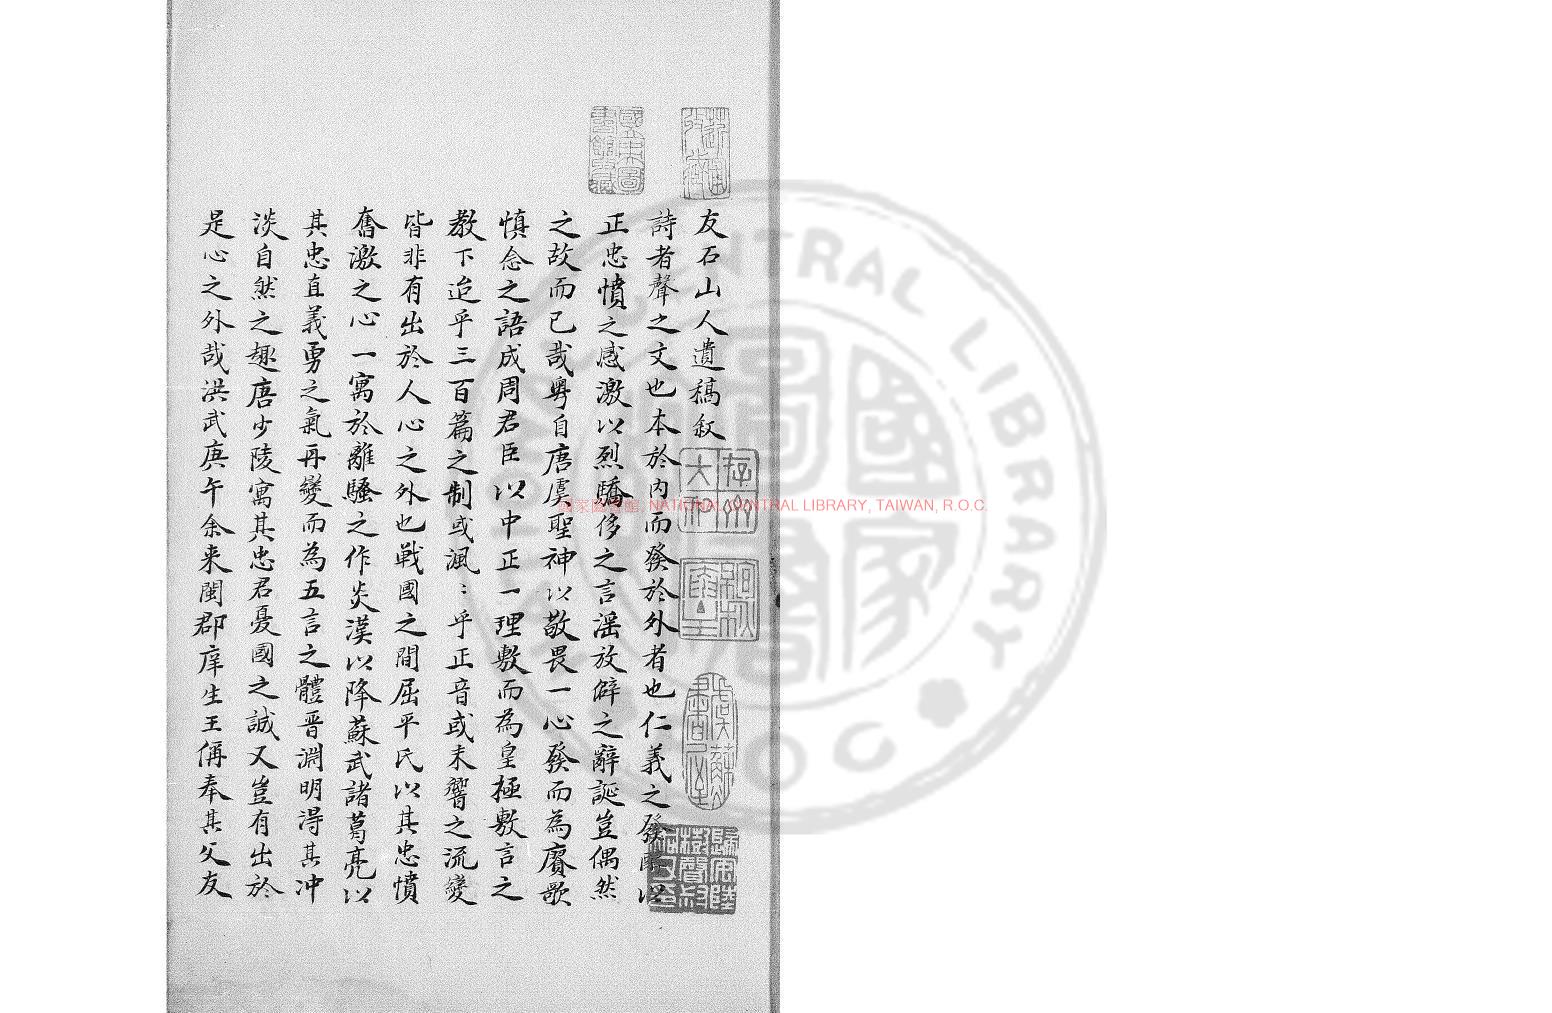 友石山人遺稿叙
詩者聲之文也本於內而發於外者也仁義之發醇以
正忠憤之感激以烈驕侈之言滛放僻之辭誕豈偶然
之故而已哉粵自唐虞聖神以敬畏一心發而為賡歌
慎念之語成周君臣以中正一理敷而為皇極敷言之
教下迨乎三百篇之制或渢〻乎正音或末響之流變
皆非有出於人心之外也戰國之間屈平氏以其忠憤
奮激之心一寓於離騷之作炎漢以降蘇武諸葛亮以
其忠直義勇之氣再變而為五言之體晉淵明淂其冲
淡自然之趣唐少陵寓其忠君憂國之誠又豈有出於
是心之外哉洪武庚午余来閩郡庠生王偁奉其父友
國立中央圖書館收藏
國家圖書館, NATIONAL CENTRAL LIBRARY, TAIWAN, R.O.C.
NATIONAL CENTRAL LIBRARY
R O C
國家圖書館